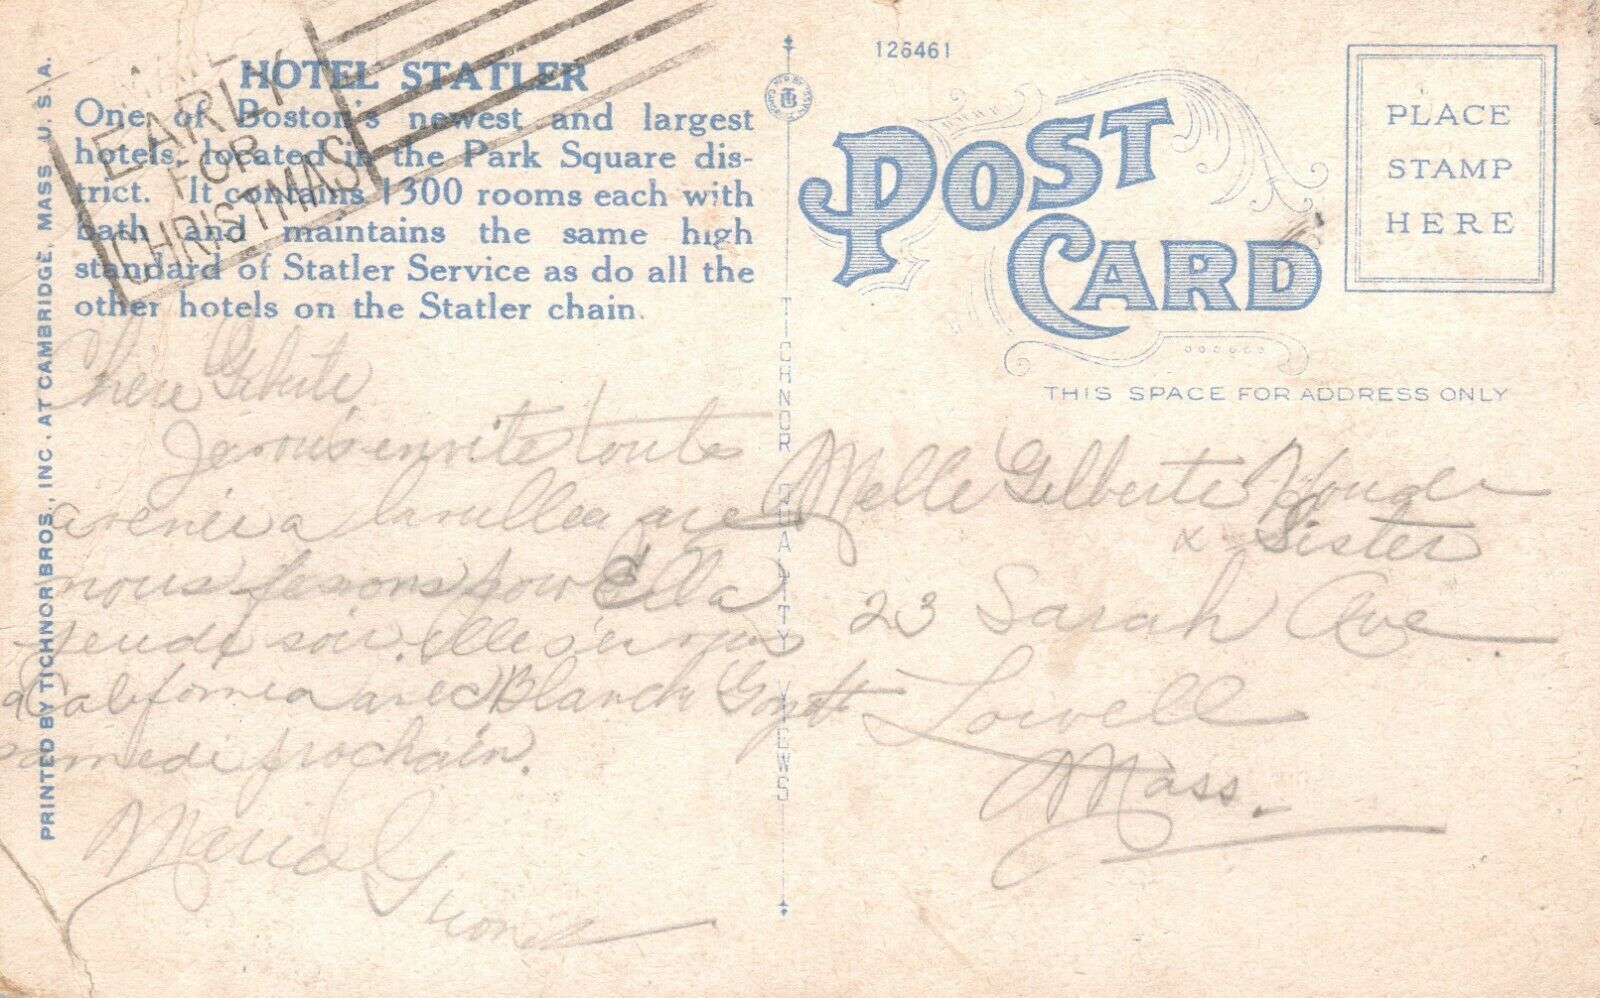 MAIL
EARLY
FOR
CHRISTMAS
HOTEL STATLER
One of Boston's newest and largest
hotels, located in the Park Square dis-
trict. It contains 1300 rooms each with
bath and maintains the same high
standard of Statler Service as do all the
other hotels on the Statler chain.
Chere Gilberte
Je vous invite toute
a venir a la que
nous fesons pour Ella
jeudi soir. elle s'en va
a California avec Blanche
samedi prochain.
Maria
PRINTED BY TICHNOR BROS., INC. AT CAMBRIDGE, MASS U. S. A.
TICHNOR QUALITY VIEWS
126461
POST
CARD
PLACE
STAMP
HERE
THIS SPACE FOR ADDRESS ONLY
Melle Gilberte
x Sister
23 Sarah Ave
Lowell
Mass.